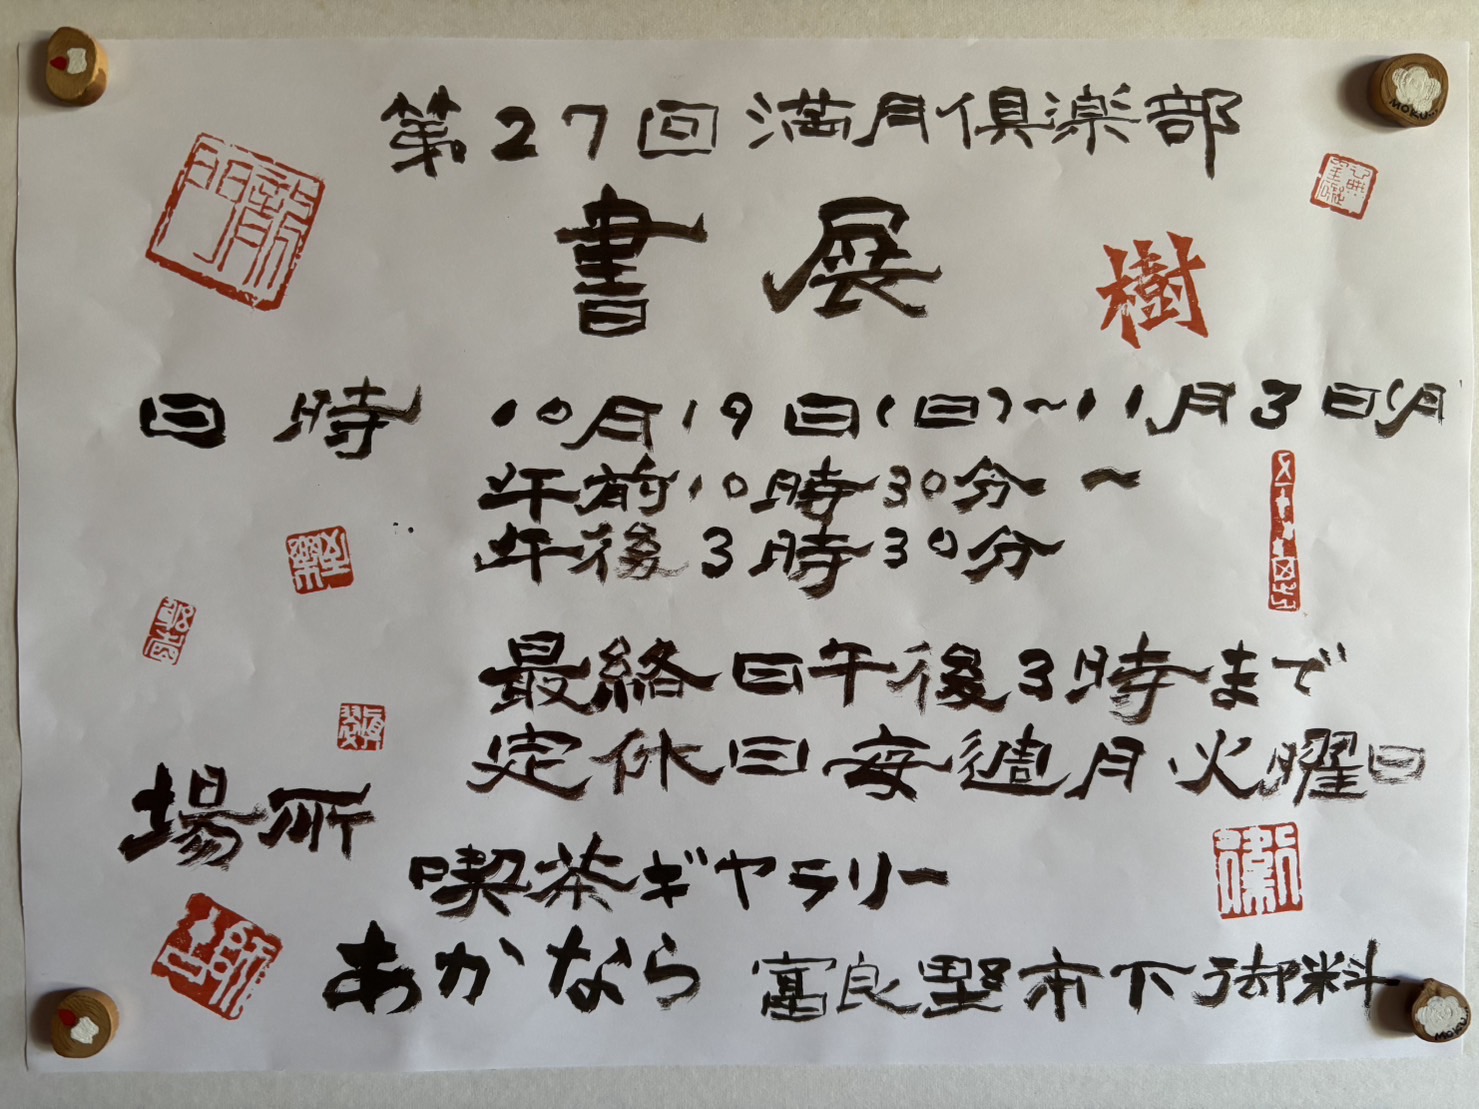 第27回満月倶楽部
書展
樹
日時 10月19日(日)~11月3日(月
午前10時30分~
午後3時30分
最終日午後3時まで
定休日毎週月火曜日
場所
喫茶ギャラリー
あかなら 富良野市下御料
MOKU
MOKU